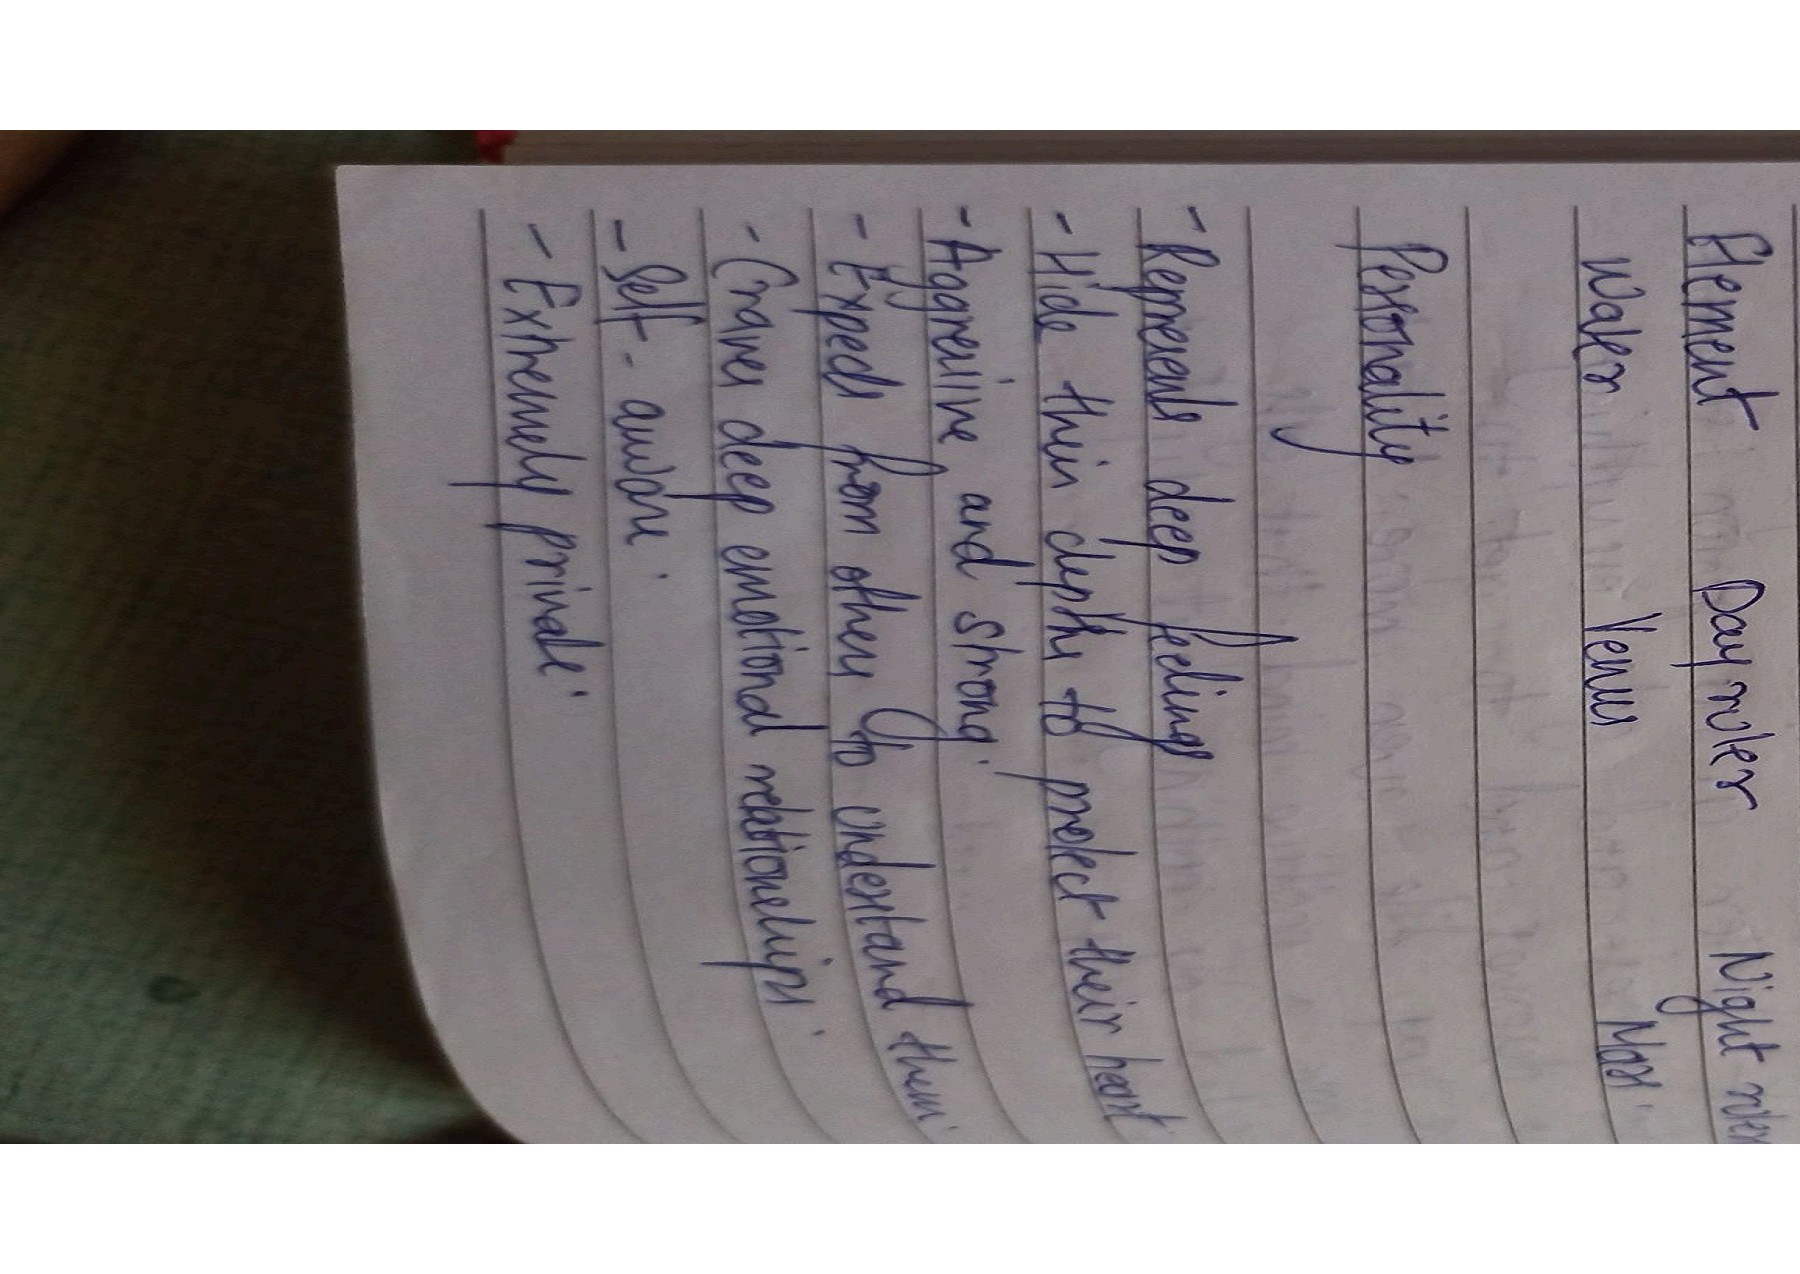 Element Day ruler Night ruler
Water Venus Mars.
Personality
- Represents deep feelings
- Hide their depths to protect their heart
- Aggressive and strong.
- Expects from others to understand them.
- Craves deep emotional relationships.
- Self-aware.
- Extremely private.